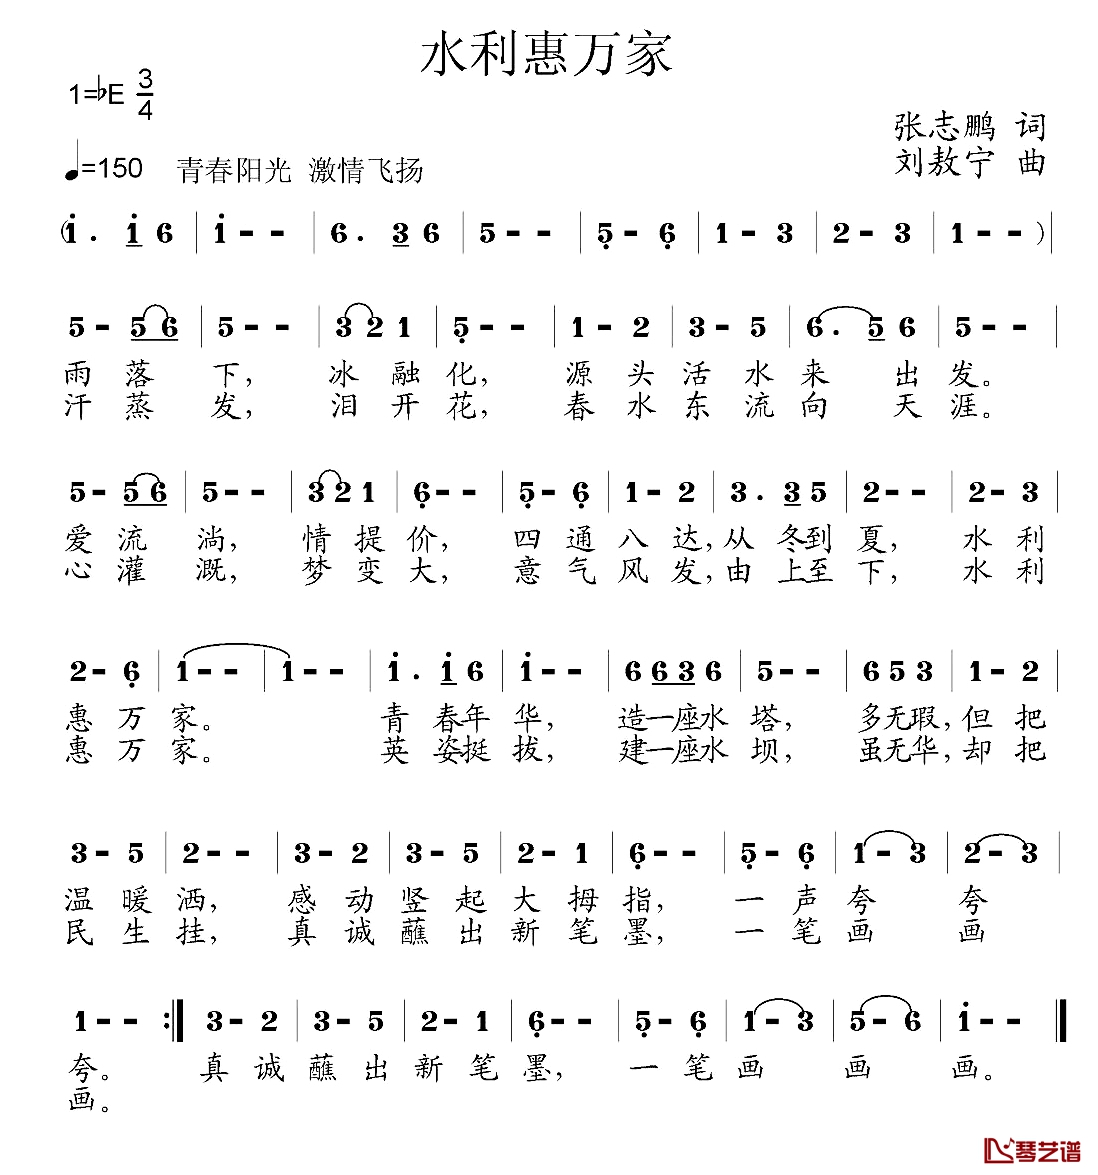 水利惠万家
1=♭E 3/4
张志鹏 词
♩=150 青春阳光 激情飞扬
刘敖宁 曲
(i . i 6 | i - - | 6 . 3 6 | 5 - - | 5̣ - 6̣ | 1 - 3 | 2 - 3 | 1 - - )|
5 - 5 6 | 5 - - | 3 2 1 | 5̣ - - | 1 - 2 | 3 - 5 | 6 . 5 6 | 5 - - |
雨 落 下, 冰 融 化, 源 头 活 水 来 出 发。
汗 蒸 发, 泪 开 花, 春 水 东 流 向 天 涯。
5 - 5 6 | 5 - - | 3 2 1 | 6̣ - - | 5̣ - 6̣ | 1 - 2 | 3 . 3 5 | 2 - - | 2 - 3
爱 流 淌, 情 提 价, 四 通 八 达, 从 冬到 夏, 水 利
心 灌 溉, 梦 变 大, 意 气 风 发, 由 上至 下, 水 利
2 - 6̣ | 1 - - | 1 - - | i . i 6 | i - - | 6 6 3 6 | 5 - - | 6 5 3 | 1 - 2 |
惠 万 家。 青 春年 华, 造一座水 塔, 多无瑕, 但 把
惠 万 家。 英 姿挺 拔, 建一座水 坝, 虽无华, 却 把
3 - 5 | 2 - - | 3 - 2 | 3 - 5 | 2 - 1 | 6̣ - - | 5̣ - 6̣ | 1 - 3 | 2 - 3 |
温 暖 洒, 感 动 竖 起 大 拇 指, 一 声 夸 夸
民 生 挂, 真 诚 蘸 出 新 笔 墨, 一 笔 画 画
1 - - :‖ 3 - 2 | 3 - 5 | 2 - 1 | 6̣ - - | 5̣ - 6̣ | 1 - 3 | 5 - 6 | i - - ‖
夸。 真 诚 蘸 出 新 笔 墨, 一 笔 画 画 画。
画。
琴艺谱